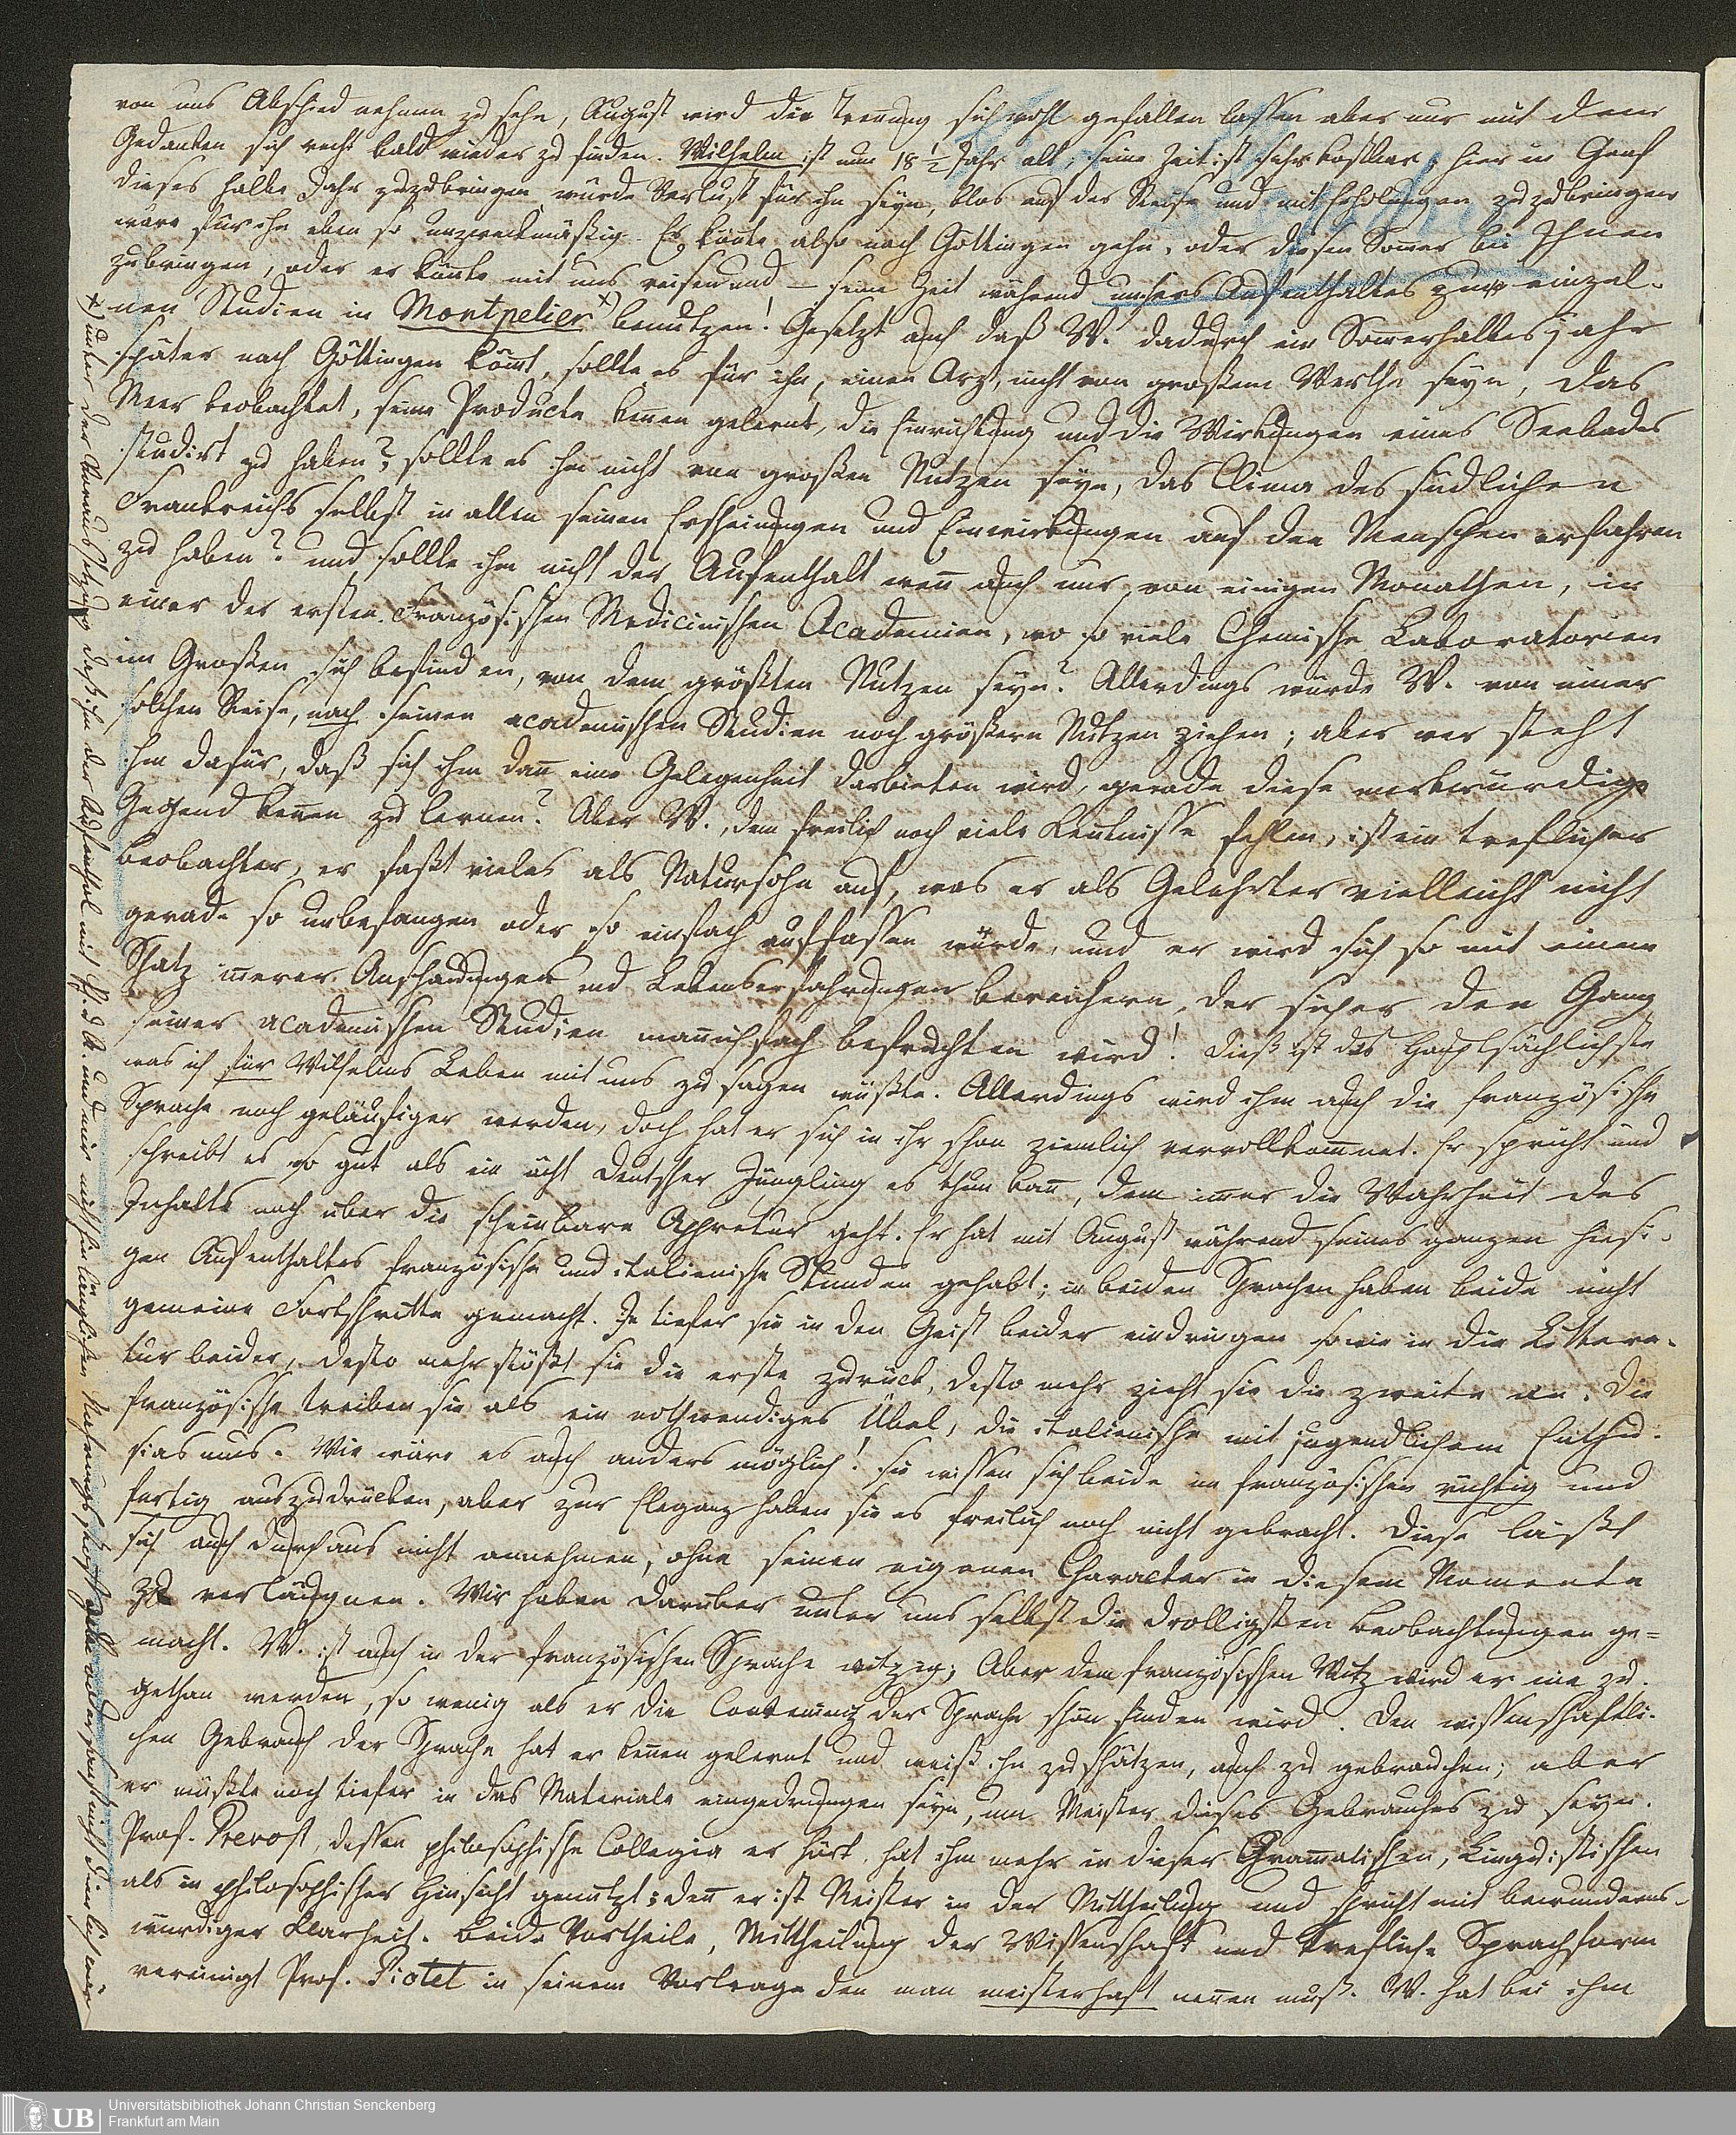 von uns Abschied nehmen zu sehn, August wird die Trennung sich wohl gefallen lassen aber nur mit dem
Gedanken sich recht bald wieder zu finden. Wilhelm ist nun 18 1/2 Jahr alt; seine Zeit ist sehr kostbar, hier in Genf
dieses halbe Jahr zuzubringen würde Verlust für ihn seyn, blos auf der Reise und mit Erholungen zuzubringen
wäre für ihn eben so unzweckmäßig. Er könte also nach Göttingen gehn, oder diesen Som̄er bei Ihnen
zubringen, oder er könte mit uns reisen und – seine Zeit während unsers Aufenthaltes zum einzel-
nen Studien in Montpelier x) benutzen! Gesetzt auch daß W. dadurch ein Som̄erhalbesjahr
später nach Göttingen köm̄t, sollte es für ihn, einen Arzt, nicht von großem Werthe seyn, das
Meer beobachtet, seine Producte kennen gelernt, die Einrichtung und die Wirkungen eines Seebades
studirt zu haben?, sollte es ihm nicht von großen Nutzen seyn, das Clima des südlichen
Frankreichs selbst in allen seinen Erscheinungen und Einwirkungen auf den Menschen erfahren
zu haben? und sollte ihm nicht der Aufenthalt wen̄ auch nur von einigen Monathen, in
einer der ersten Französischen Medicinischen Academien, wo so viele Chemische Laboratorien
im Großen sich befinden, von dem größten Nutzen seyn? Allerdings würde W. von einer
solchen Reise, nach seinen academischen Studien noch größern Nutzen ziehen; aber wer steht
ihm dafür, daß sich ihm dan̄ eine Gelegenheit darbieten wird, gerade diese merkwürdige
Gegend ken̄en zu lernen? Aber W., dem freilich noch viele Kentnisse fehlen, ist ein treflicher
Beobachter, er faßt vieles als Natursohn auf, was er als Gelehrter vielleicht nicht
gerade so unbefangen oder so einfach auffassen würde, und er wird sich so mit einem
Schatz innerer Anschauungen und Lebenserfahrungen bereichern, der sicher den Gang
seiner academischen Studien man̄ichfach befruchten wird! Dieß ist das Hauptsächlichste
was ich für Wilhelms Leben mit uns zu sagen wüßte. Allerdings wird ihm auch die französische
Sprache noch geläufiger werden, doch hat er sich in ihr schon ziemlich vervollkom̄net. Er spricht und
schreibt es so gut als ein ächt deutscher Jüngling es thun kan̄, dem im̄er die Wahrheit des
Inhalts noch über die scheinbare Appretur geht. Er hat mit August während seines ganzen hiesi-
gen Aufenthaltes französische und italienische Stunden gehabt; in beiden Sprachen haben beide nicht
gemeine Fortschritte gemacht. Je tiefer sie in den Geist beider eindringen sowie in die Littera-
tur beider, desto mehr stößt sie die erste zurück, desto mehr zieht sie die zweite an. Die
französische treiben sie als ein nothwendiges Übel, die italienische mit jugendlichem Enthu-
siasmus. Wie wäre es auch anders möglich! sie wissen sich beide im französischen richtig und
fertig auszudrücken, aber zur Eleganz haben sie es freilich noch nicht gebracht. Diese läßt
sich auch durchaus nicht annehmen, ohne seinen eigenen Character in diesem Momente
zu verläugnen. Wir haben darüber unter uns selbst die drolligsten Beobachtungen ge=
macht. W. ist auch in der französischen Sprache witzig; Aber dem französischen Witz wird er nie zu-
gethan werden, so wenig als er die Contenenz der Sprache schön finden wird. Den wissenschaftli-
chen Gebrauch der Sprache hat er ken̄en gelernt und weiß ihn zu schätzen, auch zu gebrauchen; aber
er müßte noch tiefer in das Materiale eingedrungen seyn, um Meister dieses Gebrauches zu seyn.
Prof. Prevost, dessen philosophische Collegia er hört, hat ihm mehr in dieser Gram̄atischen, Linguistischen
als in philosophischer Hinsicht genutzt; den̄ er ist Meister in der Mittheilung und spricht mit bewunderns-
würdiger Klarheit. Beide Vortheile, Mittheilung der Wissenschaft und trefliche Sprachform
vereinigt Prof. Pictet in seinem Vortrage den man meisterhaft nennen muß. W. hat bei ihm
x) unter der Voraussetzung daß ihm der Aufenthalt mit A. und mir nicht hinlänglichen Nahrungsstoff
Universitätsbibliothek Johann Christian Senckenberg
Frankfurt am Main
UB